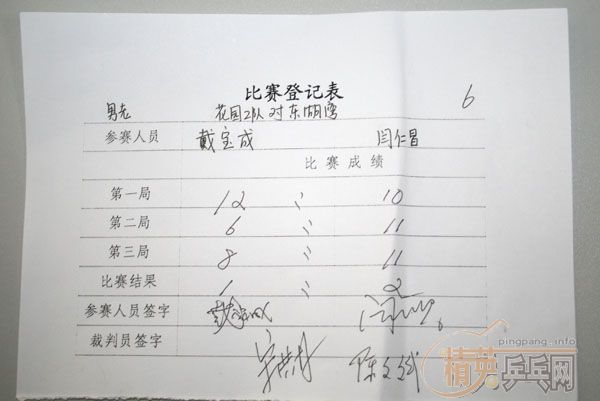 比赛登记表
男老 花园2队对东湖湾 6
参赛人员 戴宝成 闫仁昌
比赛成绩
第一局 12 : 10
第二局 6 : 11
第三局 8 : 11
比赛结果 1 : 2
参赛人员签字
裁判员签字
pingpang.info
精英乒乓网